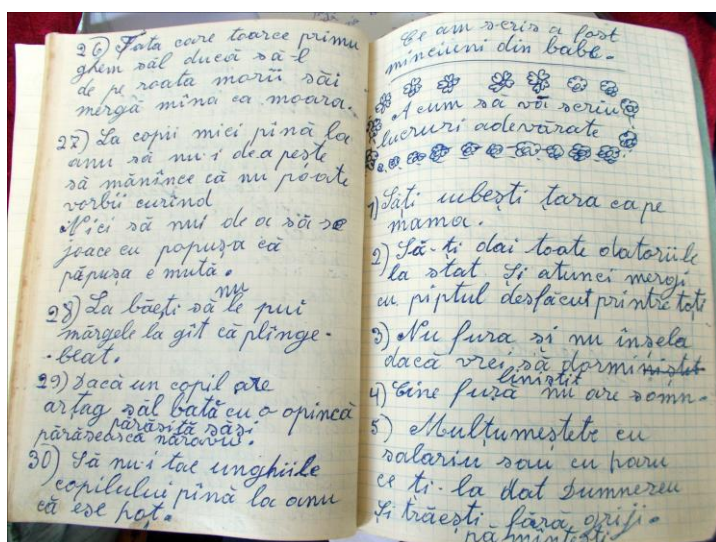 26) Fata care toarce primu
ghem săl ducă să-l
de pe roata morii săi
mergă mîna ca moara.
27) La copii mici pînă la
anu să nu-i dea pește
să mănînce că nu poate
vorbii curînd
Nici să nui dea să se
joace cu papușa că
păpușa e mută.
28) La băești să nu le pui
mărgele la gît că plînge-
-beat.
29) Dacă un copil are
artag săl bată cu o opincă
părăsită săși
părăsească năravu.
30) Să nu-i tac unghiile
copilului pînă la anu
că ese hoț.
Ce am scris a fost
minciuni din babe.
Acum să vă scriu
lucruri adevărate
1) Săți iubești țara ca pe
mama.
2) Să-ți dai toate datoriile
la stat. Și atunci mergi
cu piptul desfăcut printre toți
3) Nu fura si nu însela
dacă vrei să dormi
linistit
4) Cine fură nu are somn-
5) Mulțumeștete cu
salariu sau cu haru
ce ti-la dat Dumnezeu
Și trăești fără griji.
pămîntești